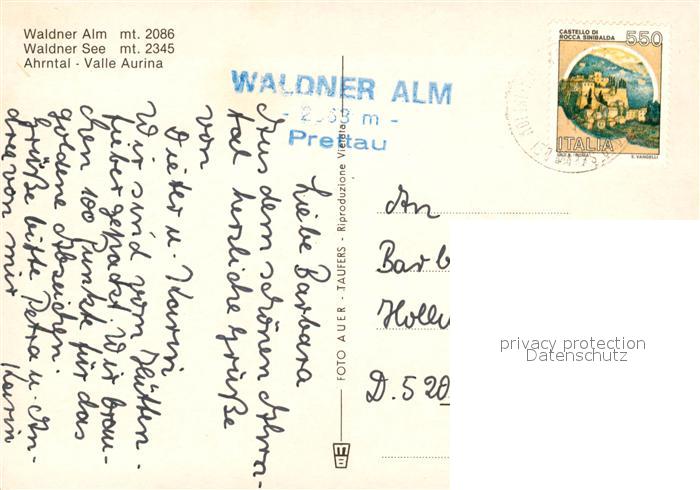 Waldner Alm mt. 2086
Waldner See mt. 2345
Ahrntal - Valle Aurina
WALDNER ALM
Prettau
CASTELLO DI
ROCCA SINIBALDA
550
ITALIA
E. VANGELLI
Liebe Barbara
Aus dem schönen Ahrn-
tal herzliche Grüße
von
Dieter u. Karin
Wir sind vom Hütten-
fieber gepackt. Wir brau-
chen 100 Punkte für das
goldene Abzeichen.
Grüße bitte Petra u. An-
drea von mir Karin
FOTO AUER - TAUFERS - Riproduzione Vietata
An
Barb
Hollu
D. 520
privacy protection
Datenschutz